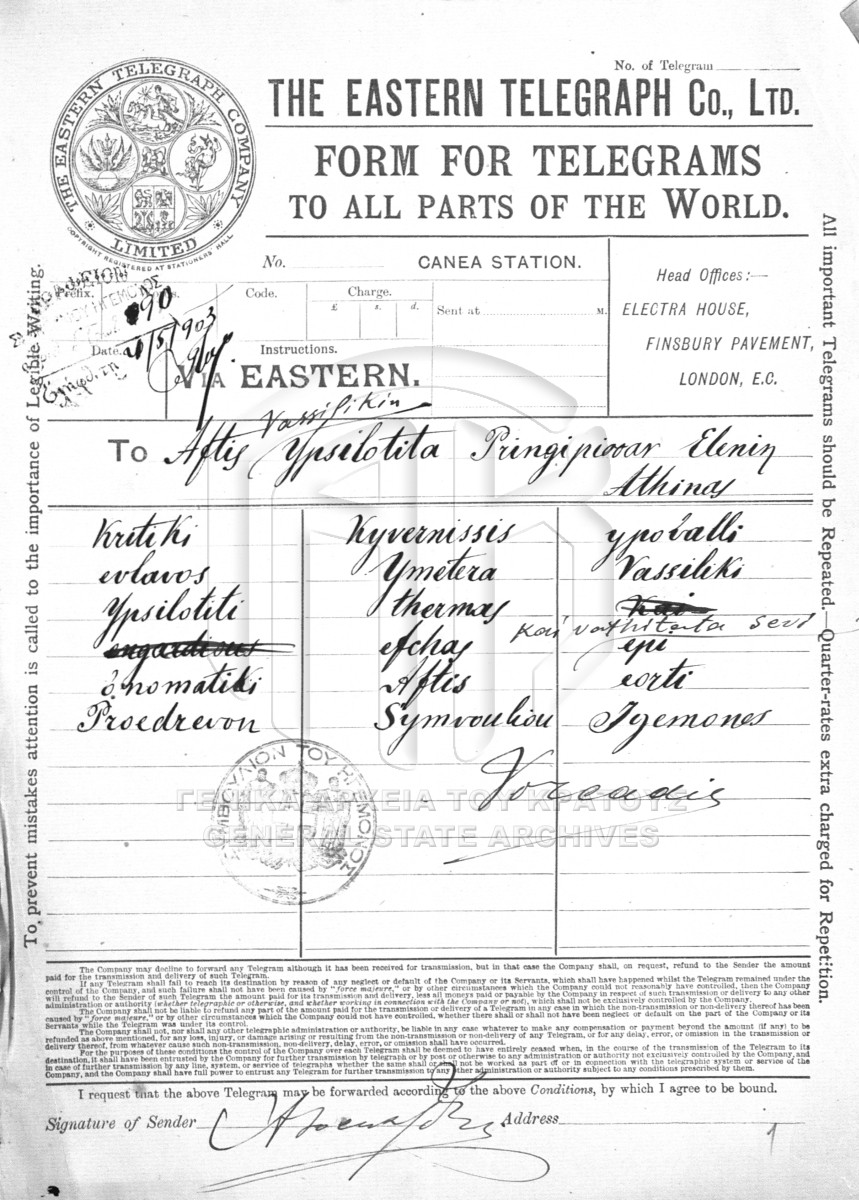 No. of Telegram
THE EASTERN TELEGRAPH Co., LTD.
FORM FOR TELEGRAMS
TO ALL PARTS OF THE WORLD.
THE EASTERN TELEGRAPH COMPANY LIMITED
COPYRIGHT REGISTERED AT STATIONERS' HALL
No. CANEA STATION.
Prefix. Code. Charge.
£ s. d.
Sent at M.
Head Offices:—
ELECTRA HOUSE,
FINSBURY PAVEMENT,
LONDON, E.C.
90
Date 21/5/1903
Instructions.
VIA EASTERN.
Vassilikin
To Aftis Ypsilotita Pringipissar Elenin
Athinas
Kritiki Kyvernissis ypovalli
evlavos Ymetera Vassiliki
Ypsilotiti thermas kai
kai vathitata sevi
efchas epi
onomatiki Aftis eorti
Proedrevon Symvouliou Igemones
ΣΥΜΒΟΥΛΙΟΝ ΤΟΥ ΗΓΕΜΟΝΟΣ
ΓΕΝΙΚΑ ΑΡΧΕΙΑ ΤΟΥ ΚΡΑΤΟΥΣ
GENERAL STATE ARCHIVES
To prevent mistakes attention is called to the importance of Legible Writing.
All important Telegrams should be Repeated.—Quarter-rates extra charged for Repetition.
The Company may decline to forward any Telegram although it has been received for transmission, but in that case the Company shall, on request, refund to the Sender the amount
paid for the transmission and delivery of such Telegram.
If any Telegram shall fail to reach its destination by reason of any neglect or default of the Company or its Servants, which shall have happened whilst the Telegram remained under the
control of the Company, and such failure shall not have been caused by "force majeure," or by other circumstances which the Company could not reasonably have controlled, then the Company
will refund to the Sender of such Telegram the amount paid for its transmission and delivery, less all moneys paid or payable by the Company in respect of such transmission or delivery to any other
administration or authority (whether telegraphic or otherwise, and whether working in connection with the Company or not), which shall not be exclusively controlled by the Company.
The Company shall not be liable to refund any part of the amount paid for the transmission or delivery of a Telegram in any case in which the non-transmission or non-delivery thereof has been
caused by "force majeure," or by other circumstances which the Company could not have controlled, whether there shall or shall not have been neglect or default on the part of the Company or its
Servants while the Telegram was under its control.
The Company shall not, nor shall any other telegraphic administration or authority, be liable in any case whatever to make any compensation or payment beyond the amount (if any) to be
refunded as above mentioned, for any loss, injury, or damage arising or resulting from the non-transmission or non-delivery of any Telegram, or for any delay, error, or omission in the transmission or
delivery thereof, from whatever cause such non-transmission, non-delivery, delay, error, or omission shall have occurred.
For the purposes of these conditions the control of the Company over each Telegram shall be deemed to have entirely ceased when, in the course of the transmission of the Telegram to its
destination, it has been entrusted by the Company for further transmission by telegraph or by post or otherwise to any administration or authority not exclusively controlled by the Company, and
in case of further transmission by any line, system, or service of telegraphs whether the same shall or shall not be worked as part of or in connection with the telegraphic system or service of the
Company, and the Company shall have full power to entrust any Telegram for further transmission to any other administration or authority subject to any conditions prescribed by them.
I request that the above Telegram may be forwarded according to the above Conditions, by which I agree to be bound.
Signature of Sender Address
1